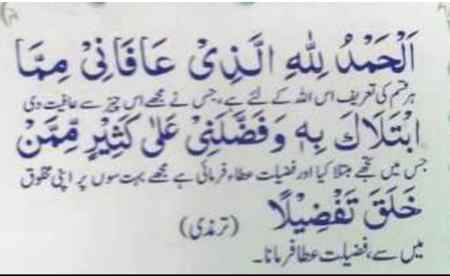 اَلْحَمْدُ لِلّٰهِ الَّذِیْ عَافَانِیْ مِمَّا
ہر قسم کی تعریف اس اللہ کے لئے ہے، جس نے مجھے اس چیز سے عافیت دی
ابْتَلَاكَ بِهٖ وَفَضَّلَنِیْ عَلٰی كَثِیْرٍ مِّمَّنْ
جس میں تجھے مبتلا کیا اور فضیلت عطاء فرمائی ہے مجھے بہت سوں پر اپنی مخلوق
خَلَقَ تَفْضِیْلًا (ترمذی)
میں سے، فضیلت عطا فرمانا۔